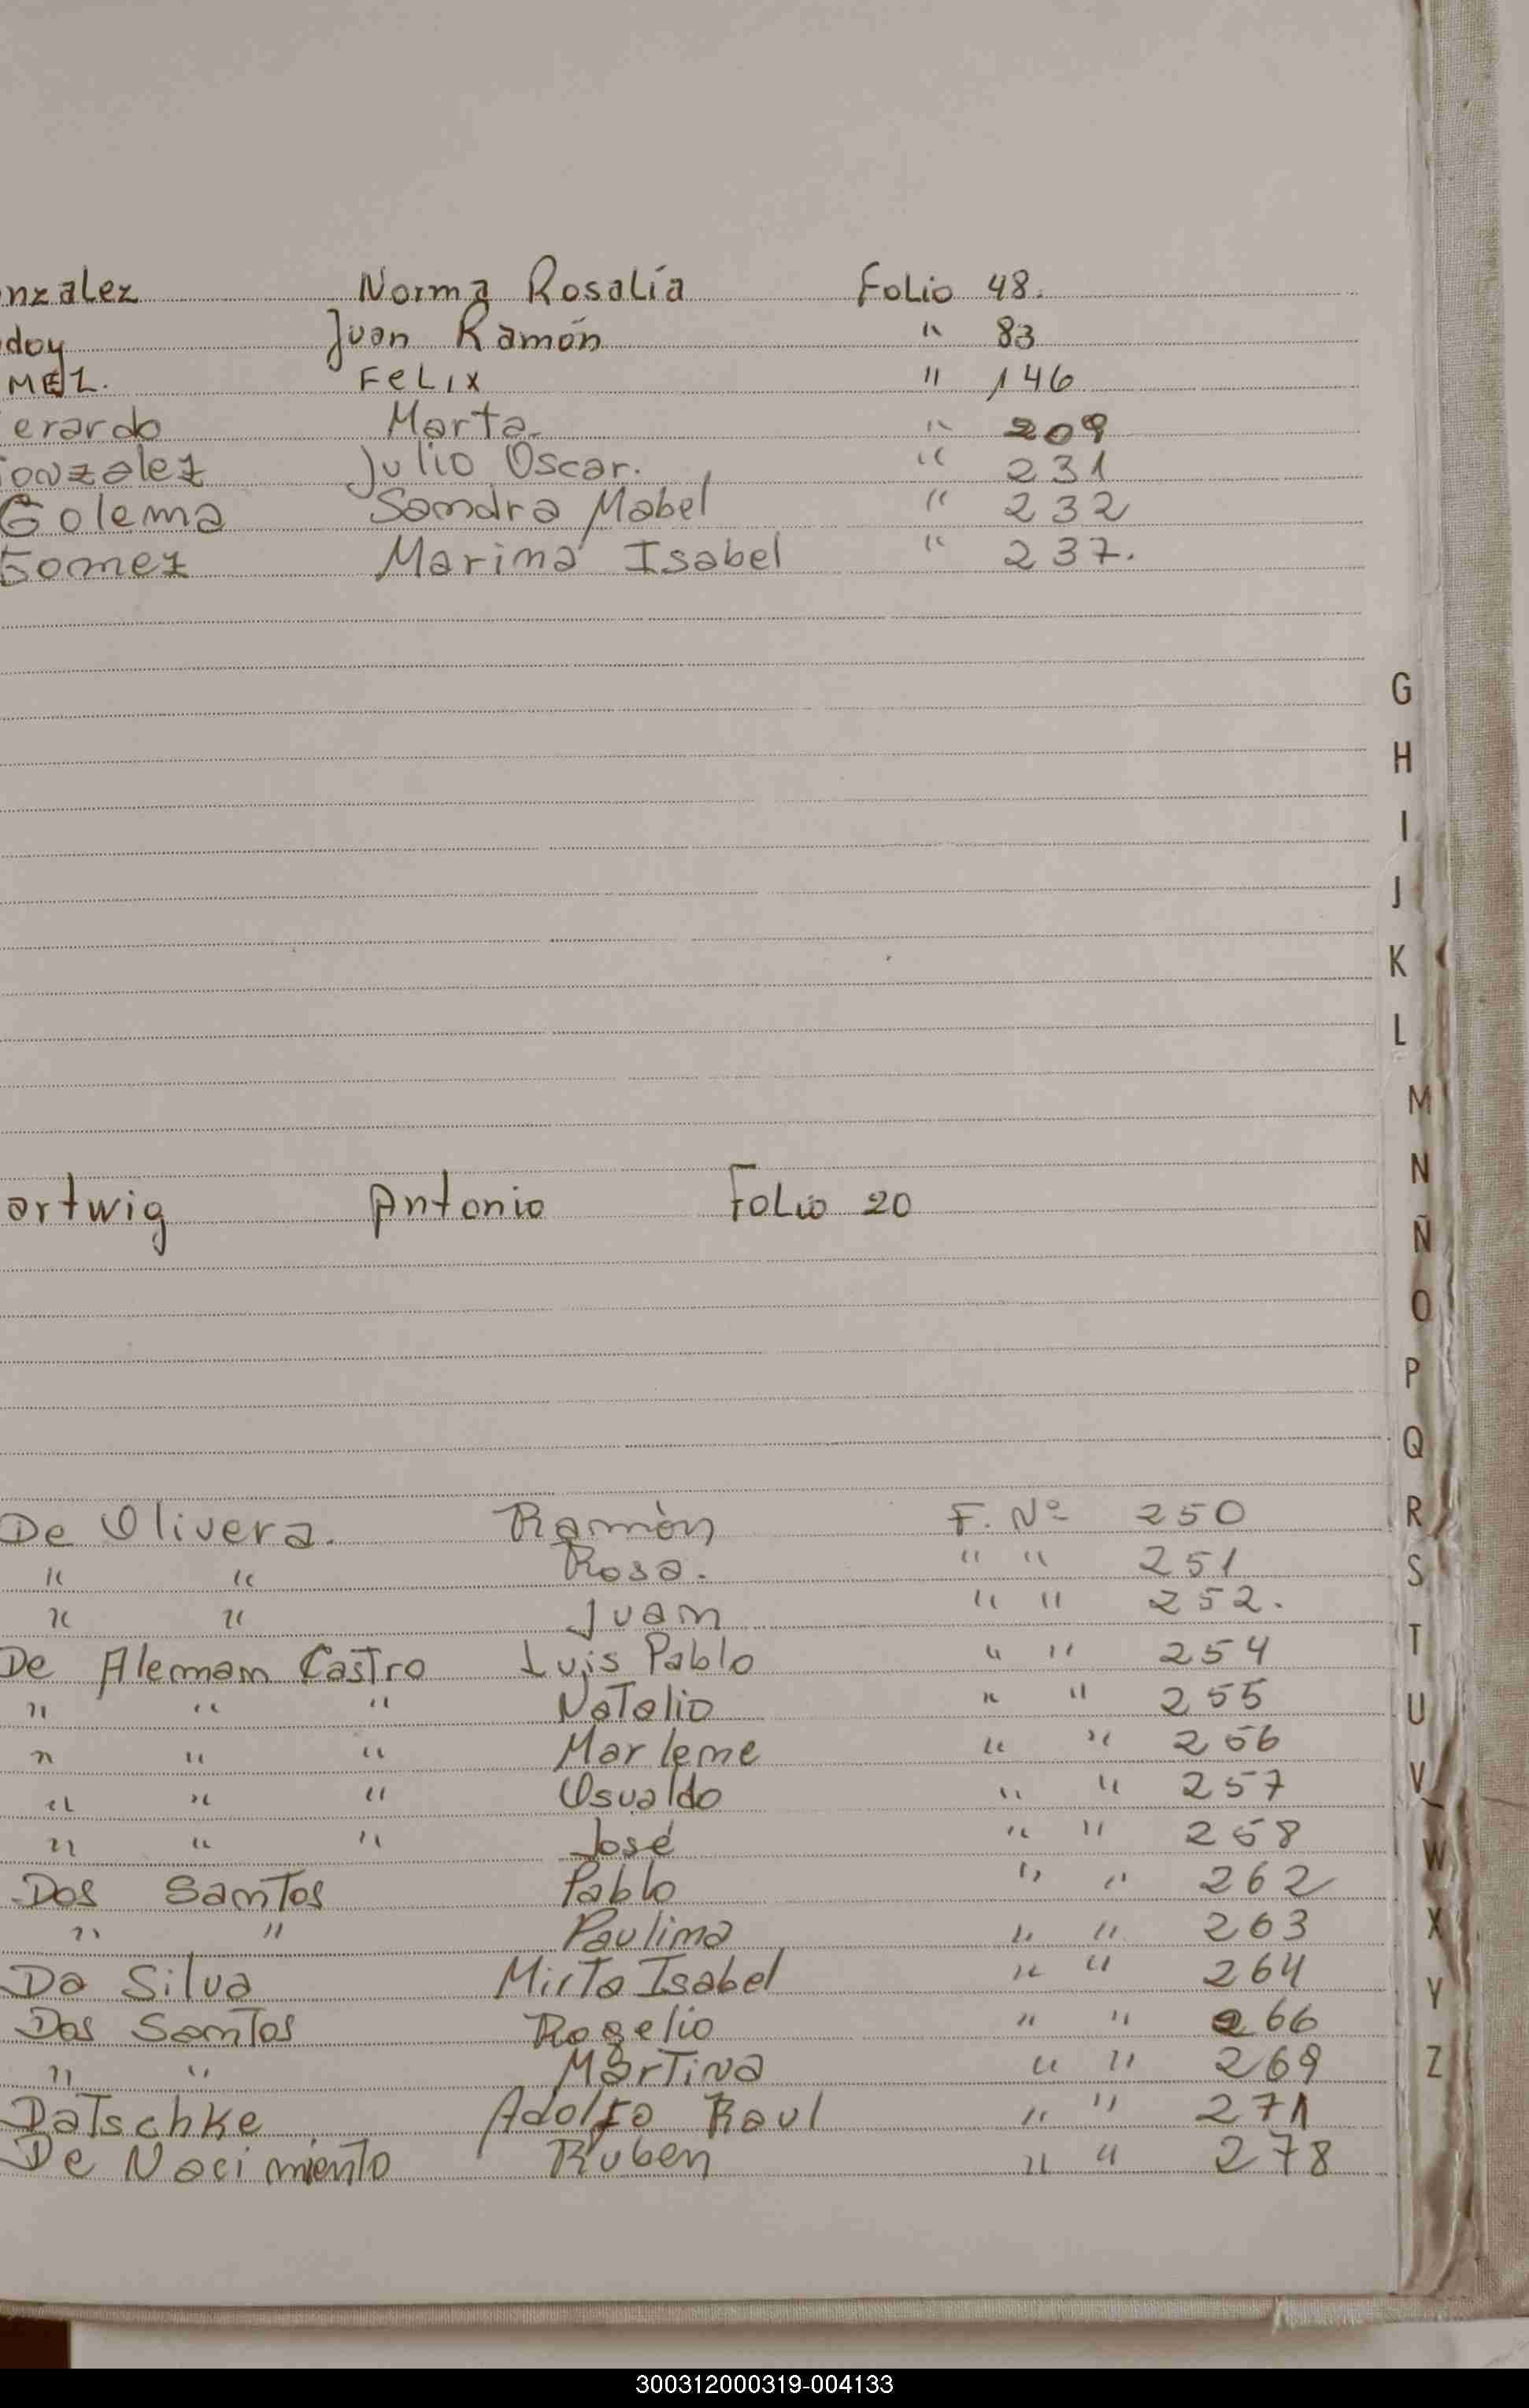 nzalez Norma Rosalía Folio 48.
doy Juan Ramón " 83
MEZ. FELIX " 146
erardo Marta. " 209
Gonzalez Julio Oscar. " 231
Golema Sandra Mabel " 232
Gomez Marina Isabel " 237.
G
H
I
J
K
L
M
N
artwig Antonio Folio 20
Ñ
O
P
Q
De Olivera. Ramòn F. Nº 250
R
" " Rosa. " " 251
S
" " Juan " " 252.
T
De Aleman Castro Luis Pablo " " 254
" " " Natalio " " 255
U
" " " Marlene " " 256
" " " Osvaldo " " 257
V
" " " José " " 258
W
Dos Santos Pablo " " 262
" " Paulina " " 263
X
Da Silva Mirta Isabel " " 264
Y
Dos Santos Rogelio " " 266
" " Martina " " 269
Z
Datschke Adolfo Raul " " 271
De Nacimiento Ruben " " 278
300312000319-004133